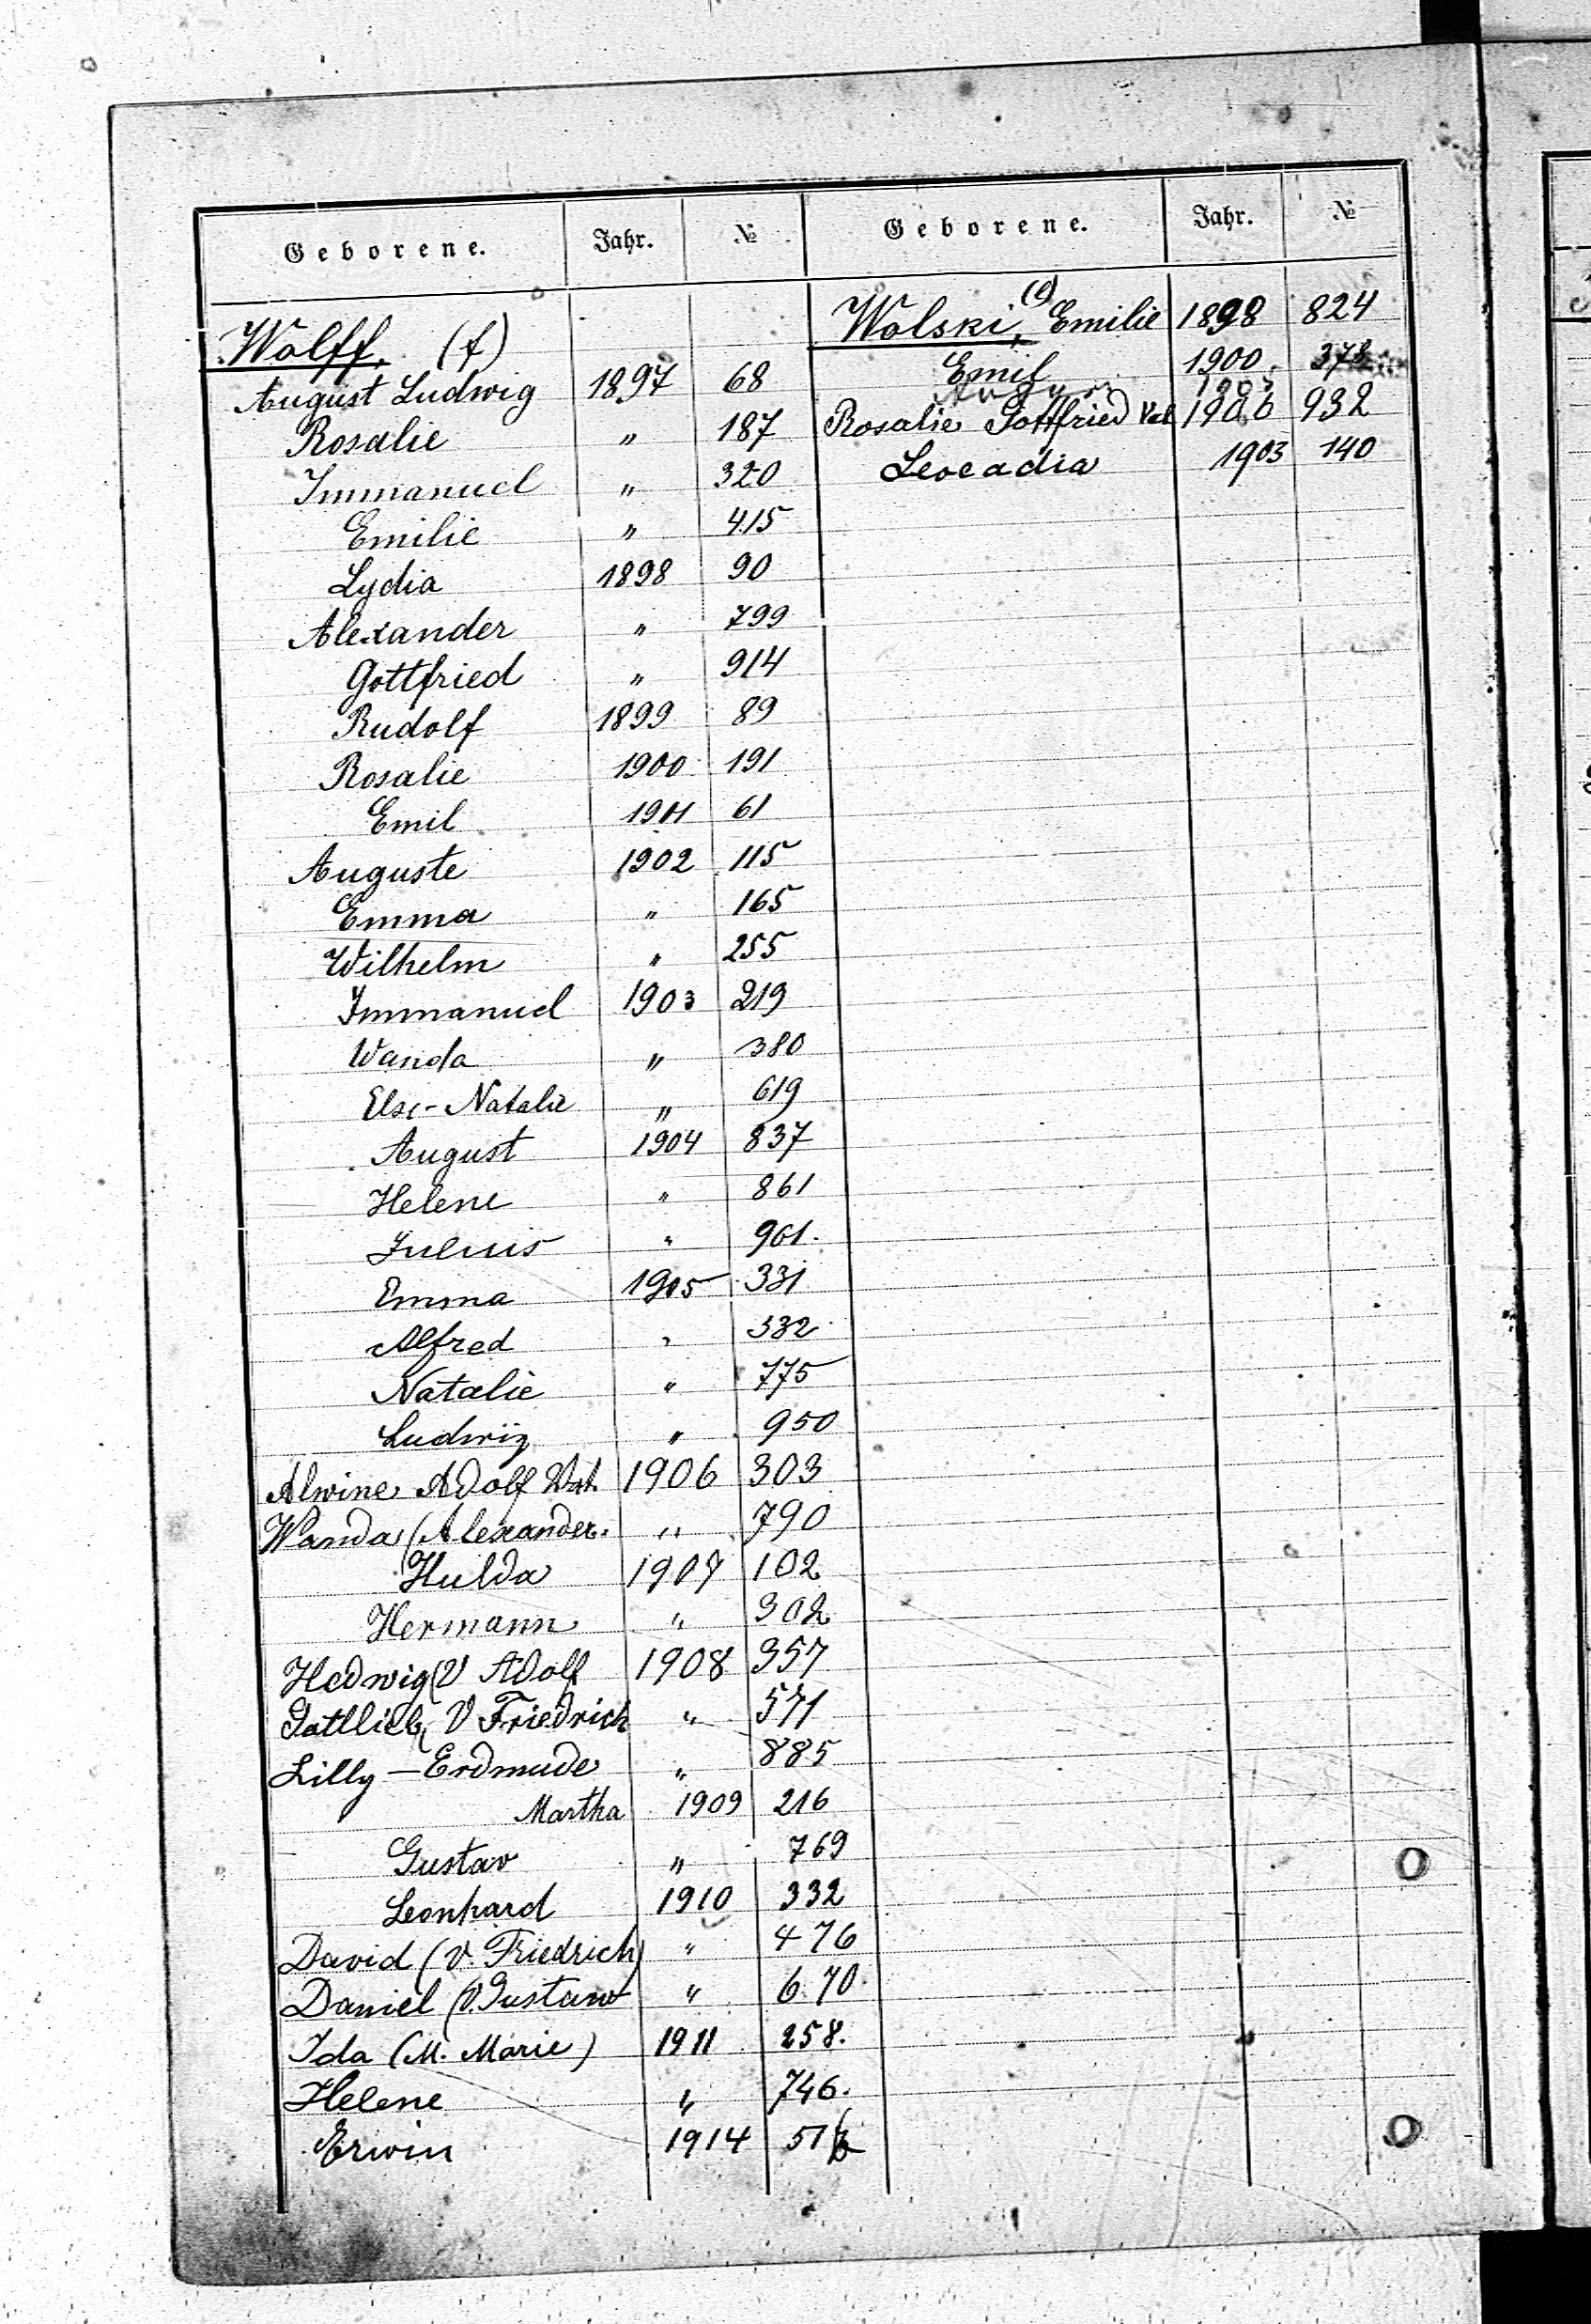 Geborene. Jahr. №
Wolff. (f)
August Ludwig 1897 68
Rosalie " 187
Immanuel " 320
Emilie " 415
Lydia 1898 90
Alexander " 799
Gottfried " 914
Rudolf 1899 89
Rosalie 1900 191
Emil 1901 61
Auguste 1902 115
Emma " 165
Wilhelm " 255
Immanuel 1903 219
Wanda " 380
Else-Natalie " 619
August 1904 837
Helene " 861
Julius " 961.
Emma 1905 331
Alfred " 332
Natalie " 775
Ludwig " 950
Alwine Adolf Vat. 1906 303
Wanda (Alexander. " 790
Hulda 1907 102
Hermann " 302
Hedwig (V Adolf 1908 357
Gottlieb, V Friedrich " 571
Lilly - Erdmude " 885
Martha 1909 216
Gustav " 769
Leonhard 1910 332
David (V. Friedrich) " 476
Daniel (V. Gustaw " 670.
Ida (M. Marie) 1911 258.
Helene " 746.
Erwin 1914
Geborene. Jahr. №
Wolski, (e) Emilie 1898 824
Emil 1900 378
Rosalie Gottfried Vat 1906 932
Leocadia 1903 140